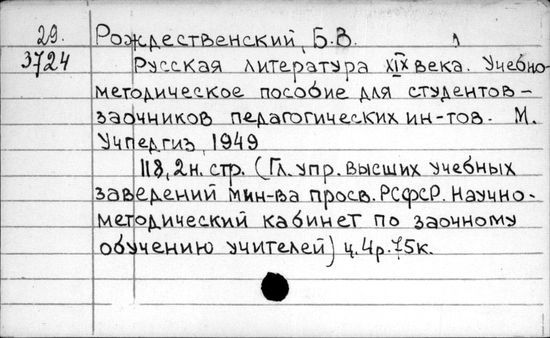 29.
3724
Рождественский, Б.В.
Русская литература XIX века. Учебно-
методическое пособие для студентов-
заочников педагогических ин-тов. М.
Учпедгиз, 1949
118,2н. стр. (Гл. упр. высших учебных
заведений Мин-ва просв. РСФСР. Научно-
методический кабинет по заочному
обучению учителей) ц. 4р. 75к.